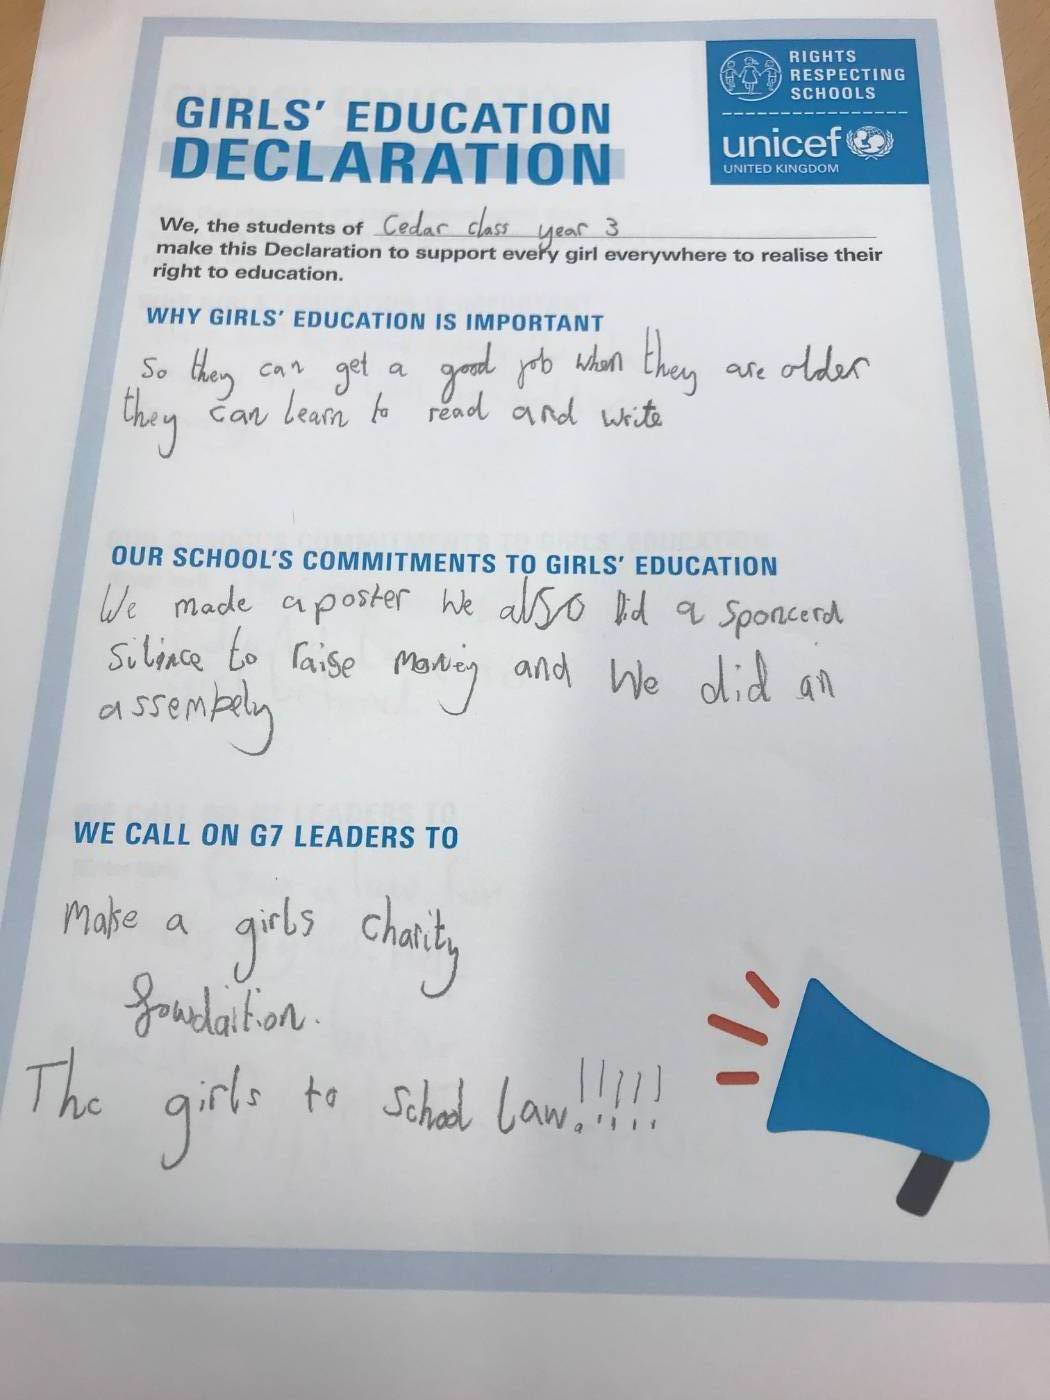 RIGHTS
RESPECTING
SCHOOLS
unicef
UNITED KINGDOM
GIRLS' EDUCATION
DECLARATION
We, the students of Cedar class year 3
make this Declaration to support every girl everywhere to realise their
right to education.
WHY GIRLS' EDUCATION IS IMPORTANT
So they can get a good job when they are older
they can learn to read and write
OUR SCHOOL'S COMMITMENTS TO GIRLS' EDUCATION
We made a poster We also did a sponcerd
silince to raise money and We did an
assembely
WE CALL ON G7 LEADERS TO
Make a girls charity
fowdaition.
The girls to school law!!!!!